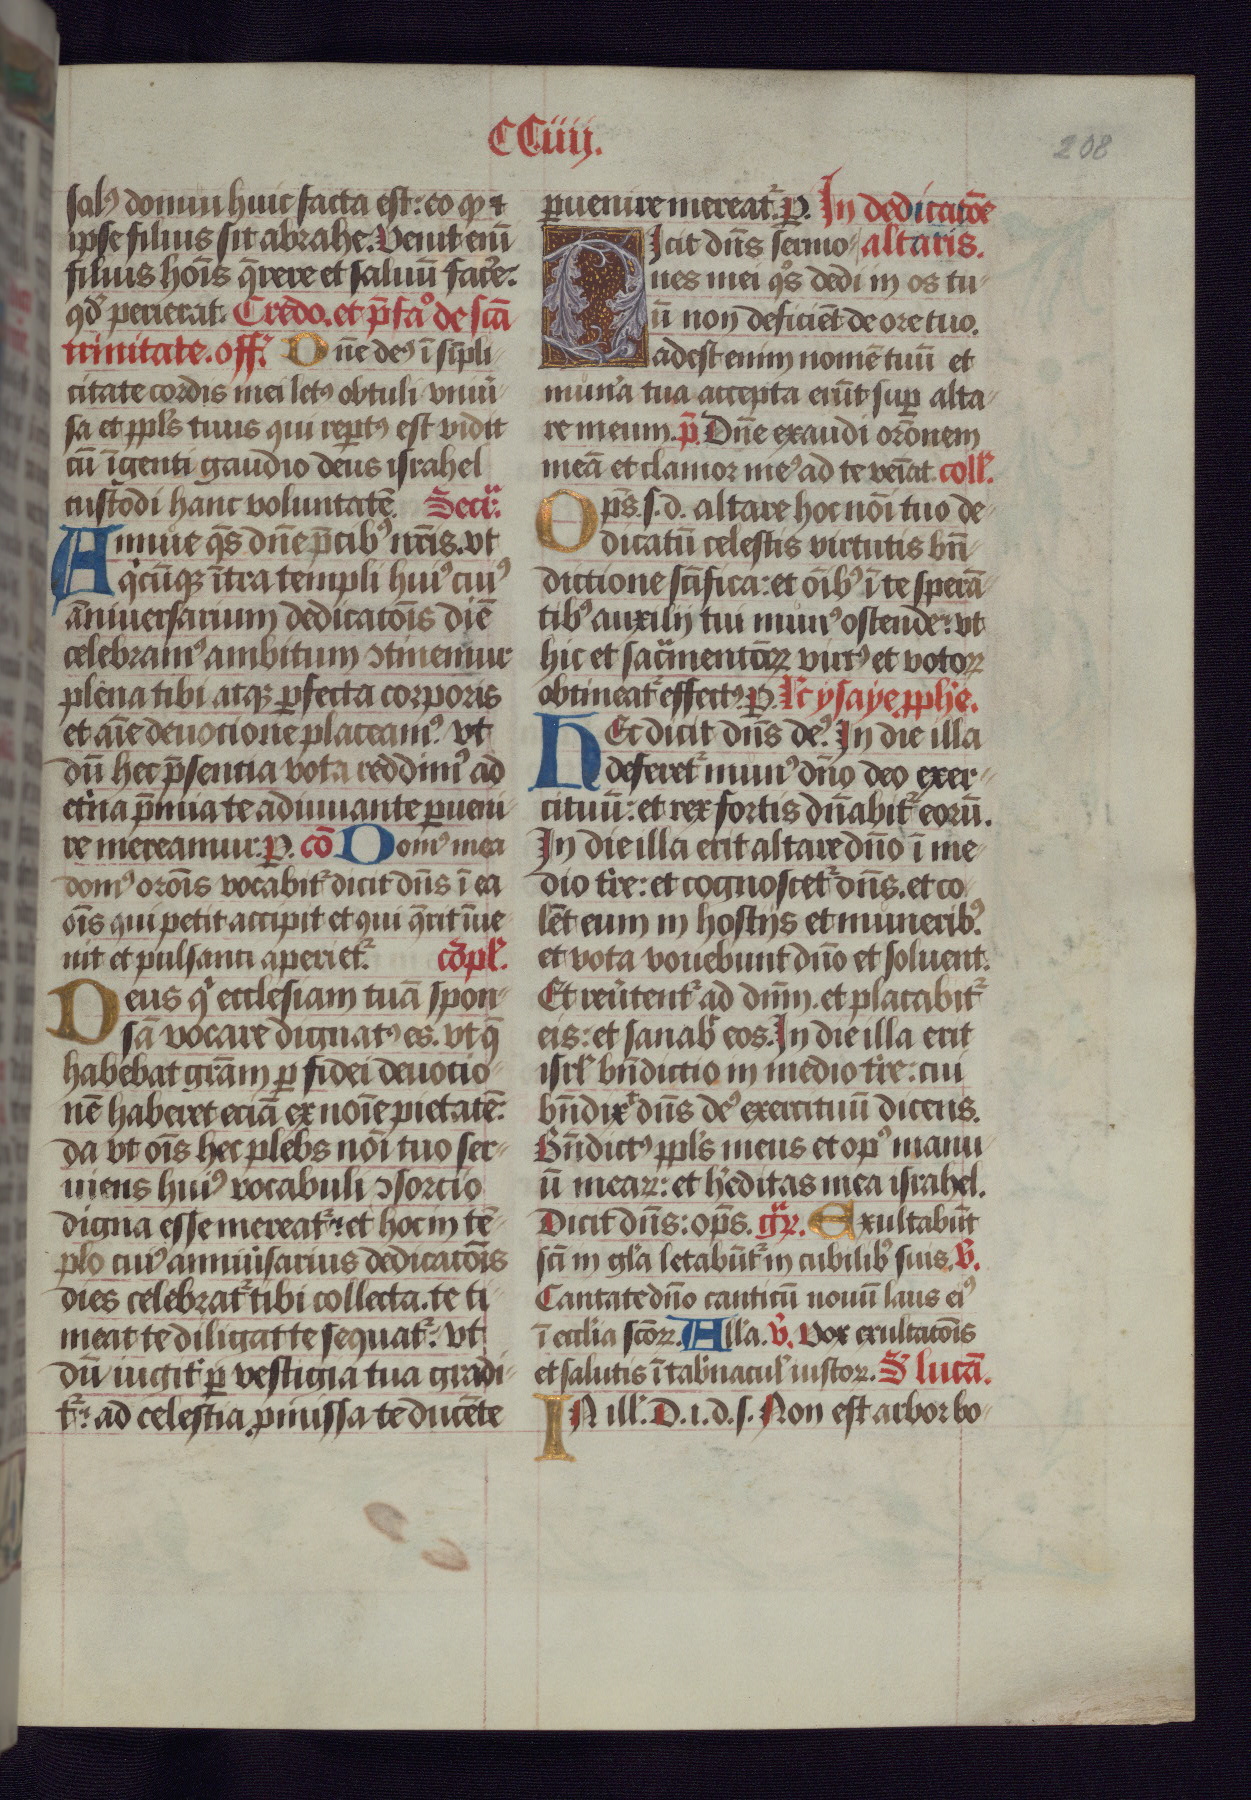 CCiiij.
208
salꝰ domui huic facta est: eo qꝫ ⁊
ipse filius sit abrahe. Venit enī
filius hoīs q̄rere et saluū facͤe:
qd̓ perierat. Credo. et p̄fao de scā
trinitate. off. Dn̄e deꝰ ī simpli
citate cordis mei letꝰ obtuli vniū
sa et ppl̄s tuus qui rep̄tꝰ est vidit
cū īgenti gaudio deus israhel
custodi hanc voluntatē. Secr̄:
Annue q̄s dn̄e p̄cibꝰ nr̄is. vt
qͥcūqꝫ ītra templi huiꝰ cuiꝰ
anniuersarium dedicatōis diē
celebramꝰ ambitum ꝯtinemur
plena tibi atqꝫ ꝑfecta corporis
et aīe deuotione placeamꝰ. vt
dū hec p̄sentia vota reddimꝰ ad
et̓na p̄mia te adiuuante ꝑueni
re mereamur. P. cō Domꝰ mea
domꝰ orōis vocabit᷑ dicit dn̄s ī ea
oīs qui petit accipit et qui q̄rit īue
nit et pulsanti aperiet᷑. cōpl̄.
Deus qͥ ecclesiam tuā spon
sā vocare dignatꝰ es. vt q̄
habebat grām ꝑ fidei deuotio
nē haberet eciā ex noīe pietatē:
da vt oīs hec plebs nōi tuo ser
uiens huiꝰ vocabuli ꝯsorcio
digna esse mereat᷑: et hoc in tē
plo cuiꝰ anniūsarius dedicatōis
dies celebrat᷑ tibi collecta. te ti
meat te diligat te sequat᷑: vt
dū iugit̓ ꝑ vestigia tua gradi
t᷑: ad celestia ꝓmissa te ducēte
ꝑuenire mereat᷑. P. In dedicatōe
Dicit dn̄s sermo altaris.
nes mei qͦs dedi in os tu
ū non deficiēt de ore tuo.
adest enim nomē tuū et
mun̓a tua accepta erūt suꝑ alta
re meum. p̄. Dn̄e exaudi orōnem
meā et clamor meꝰ ad te veīat. coll̄.
Op̄s. s. d. altare hoc nōi tuo de
dicatū celestis virtutis bn̄
dictione scīfica: et oībꝰ ī te sperā
tibꝰ auxilij tui munꝰ ostende: vt
hic et sacͣmentoꝝ virtꝰ et votoꝝ
obtineat᷑ effectꝰ. P. Lc̄ ysaye pph̄e.
Hec dicit dn̄s deꝰ. In die illa
deferet᷑ munꝰ dn̄o deo exer
cituū: et rex fortis dn̄abit᷑ eorū.
In die illa erit altare dn̄o ī me
dio t̓re: et cognoscet᷑ dn̄s. et co
lēt eum in hostijs et muneribꝰ.
et vota vouebunt dn̄o et soluent.
Et reūtent᷑ ad dn̄m. et placabit᷑
eis: et sanab̓ eos. In die illa erit
isrl̓ bn̄dictio in medio t̓re: cui
bn̄dix̓ dn̄s deꝰ exercituū dicens.
Bn̄dictꝰ ppl̄s meus et opꝰ manu
ū meaꝝ: et h̓editas mea israhel.
Dicit dn̄s: op̄s. gͣr. Exultabūt
scī in gl̓a letabūt᷑ in cubilibꝰ suis. V̓.
Cantate dn̄o canticū nouū laus eiꝰ
ī eccl̓ia scōꝝ. All̓a. V̓. Vox exultatōis
et salutis ī tab̓nacul̓ iustoꝝ. S̄ lucā.
IN ill̓. D. i. d. s. Non est arbor bo